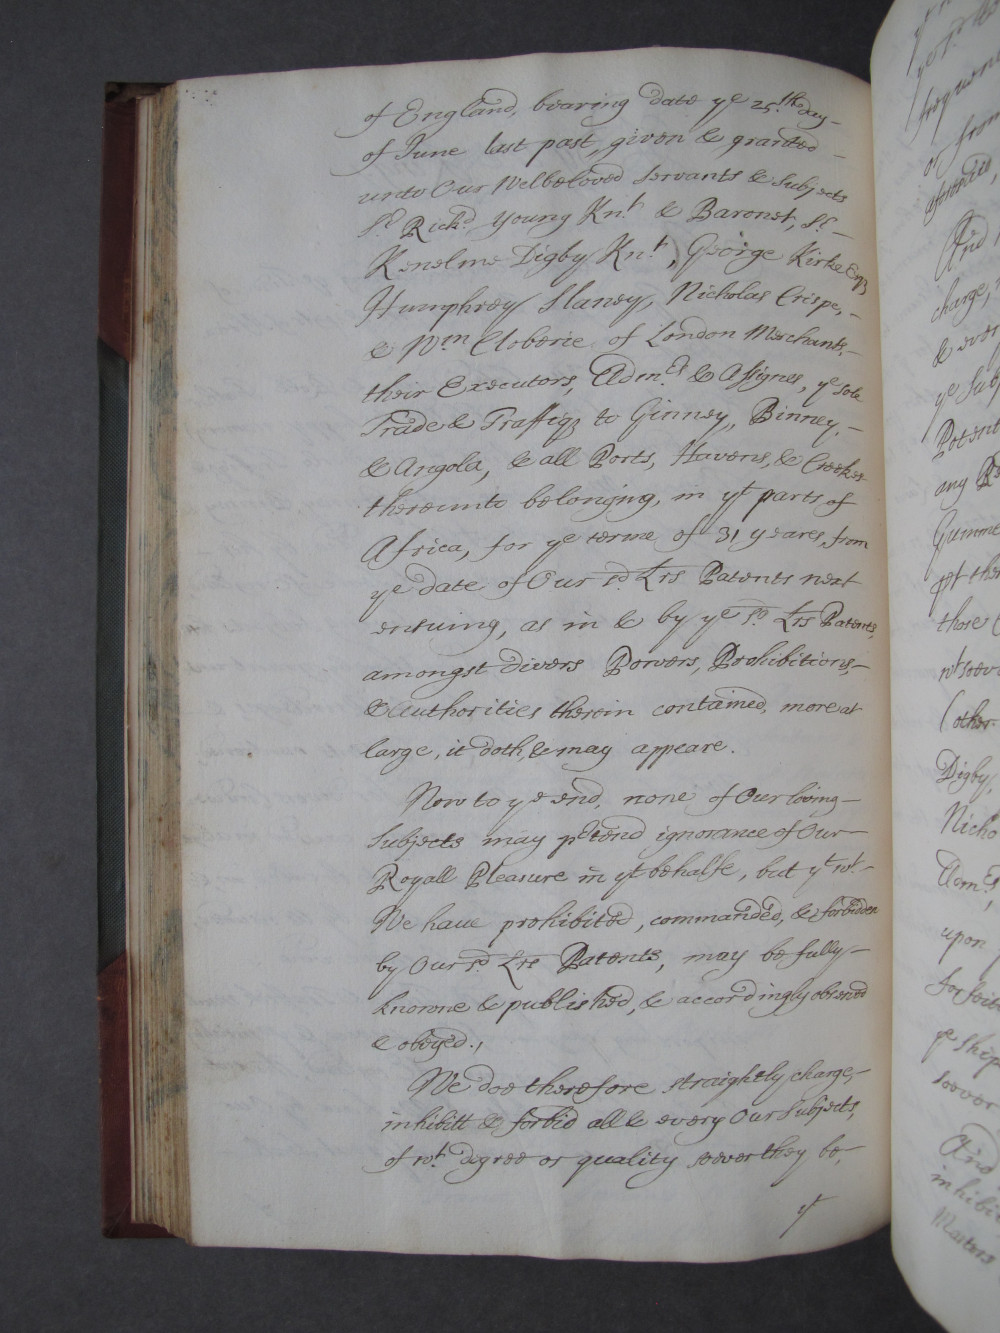 of England, bearing date ye 25.th day-
of June last past, given & granted-
unto Our Welbeloved Servants & Subjects
Sr. Richd. Young Kn.t & Baronet, Sr.-
Kenelme Digby Kn.t, George Kirke Esqz
Humphrey Slaney, Nicholas Crispe,-
& Wm Cloberie, of London Merchants,-
their Executors, Adm.rs & Assignes, ye sole
Trade & Traffiqz to Ginney, Binney,-
& Angola, & all Ports, Havens, & Creekes
thereunto belonging, in yt parts of
Africa, for ye terme of 31 yeares, from
ye date of Our sd. Lrs Patents next
ensuing, as in & by ye sd. Lrs Patents,
amongst divers Powers, Prohibitions,-
& Authorities therein contained, more at
large, it doth, & may appeare.
Now to ye end, none of Our loving-
Subjects may ptend ignorance of Our-
Royall Pleasure in yt behalfe, but yt wt.-
We have prohibited, commanded, & forbidden
by Our sd. Lrs Patents, may be fully-
knowne & published, & accordingly observed
& obeyed.,
We doe therefore straightly charge,-
inhibitt & forbid all & every Our Subjects,
of wt. degree or quality soever they be,-
yt
ye sd
frequent
or from
aforesaid,
And
charge,
& every
ye Subj
Patent
any Re
Gumme
pt them
those
wt soev
(other
Digby,
Nicho
Adm.rs,
upon
forfeit
ye ship
soever
And
inhibit
Masters